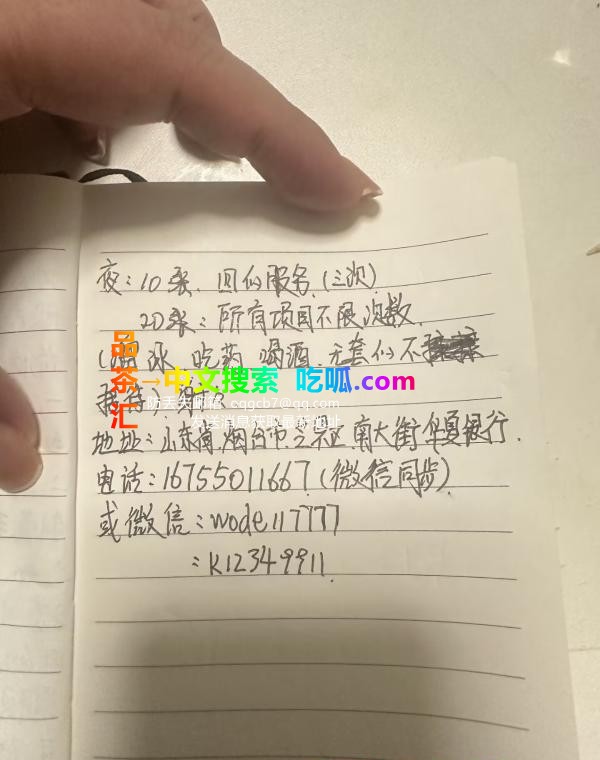 夜：10张．四个服务．(三次)
20张：所有项目不限次数．
(溜冰 吃药 喝酒．无套的不
接待)
地址：山东省烟台市芝罘区．南大街华夏银行．
电话：16755011667．(微信同步)
或微信：wode117777
：k12349911
品茶汇→中文搜索 吃呱.com
防丢失邮箱 cqgcb7@qq.com
发送消息获取最新地址